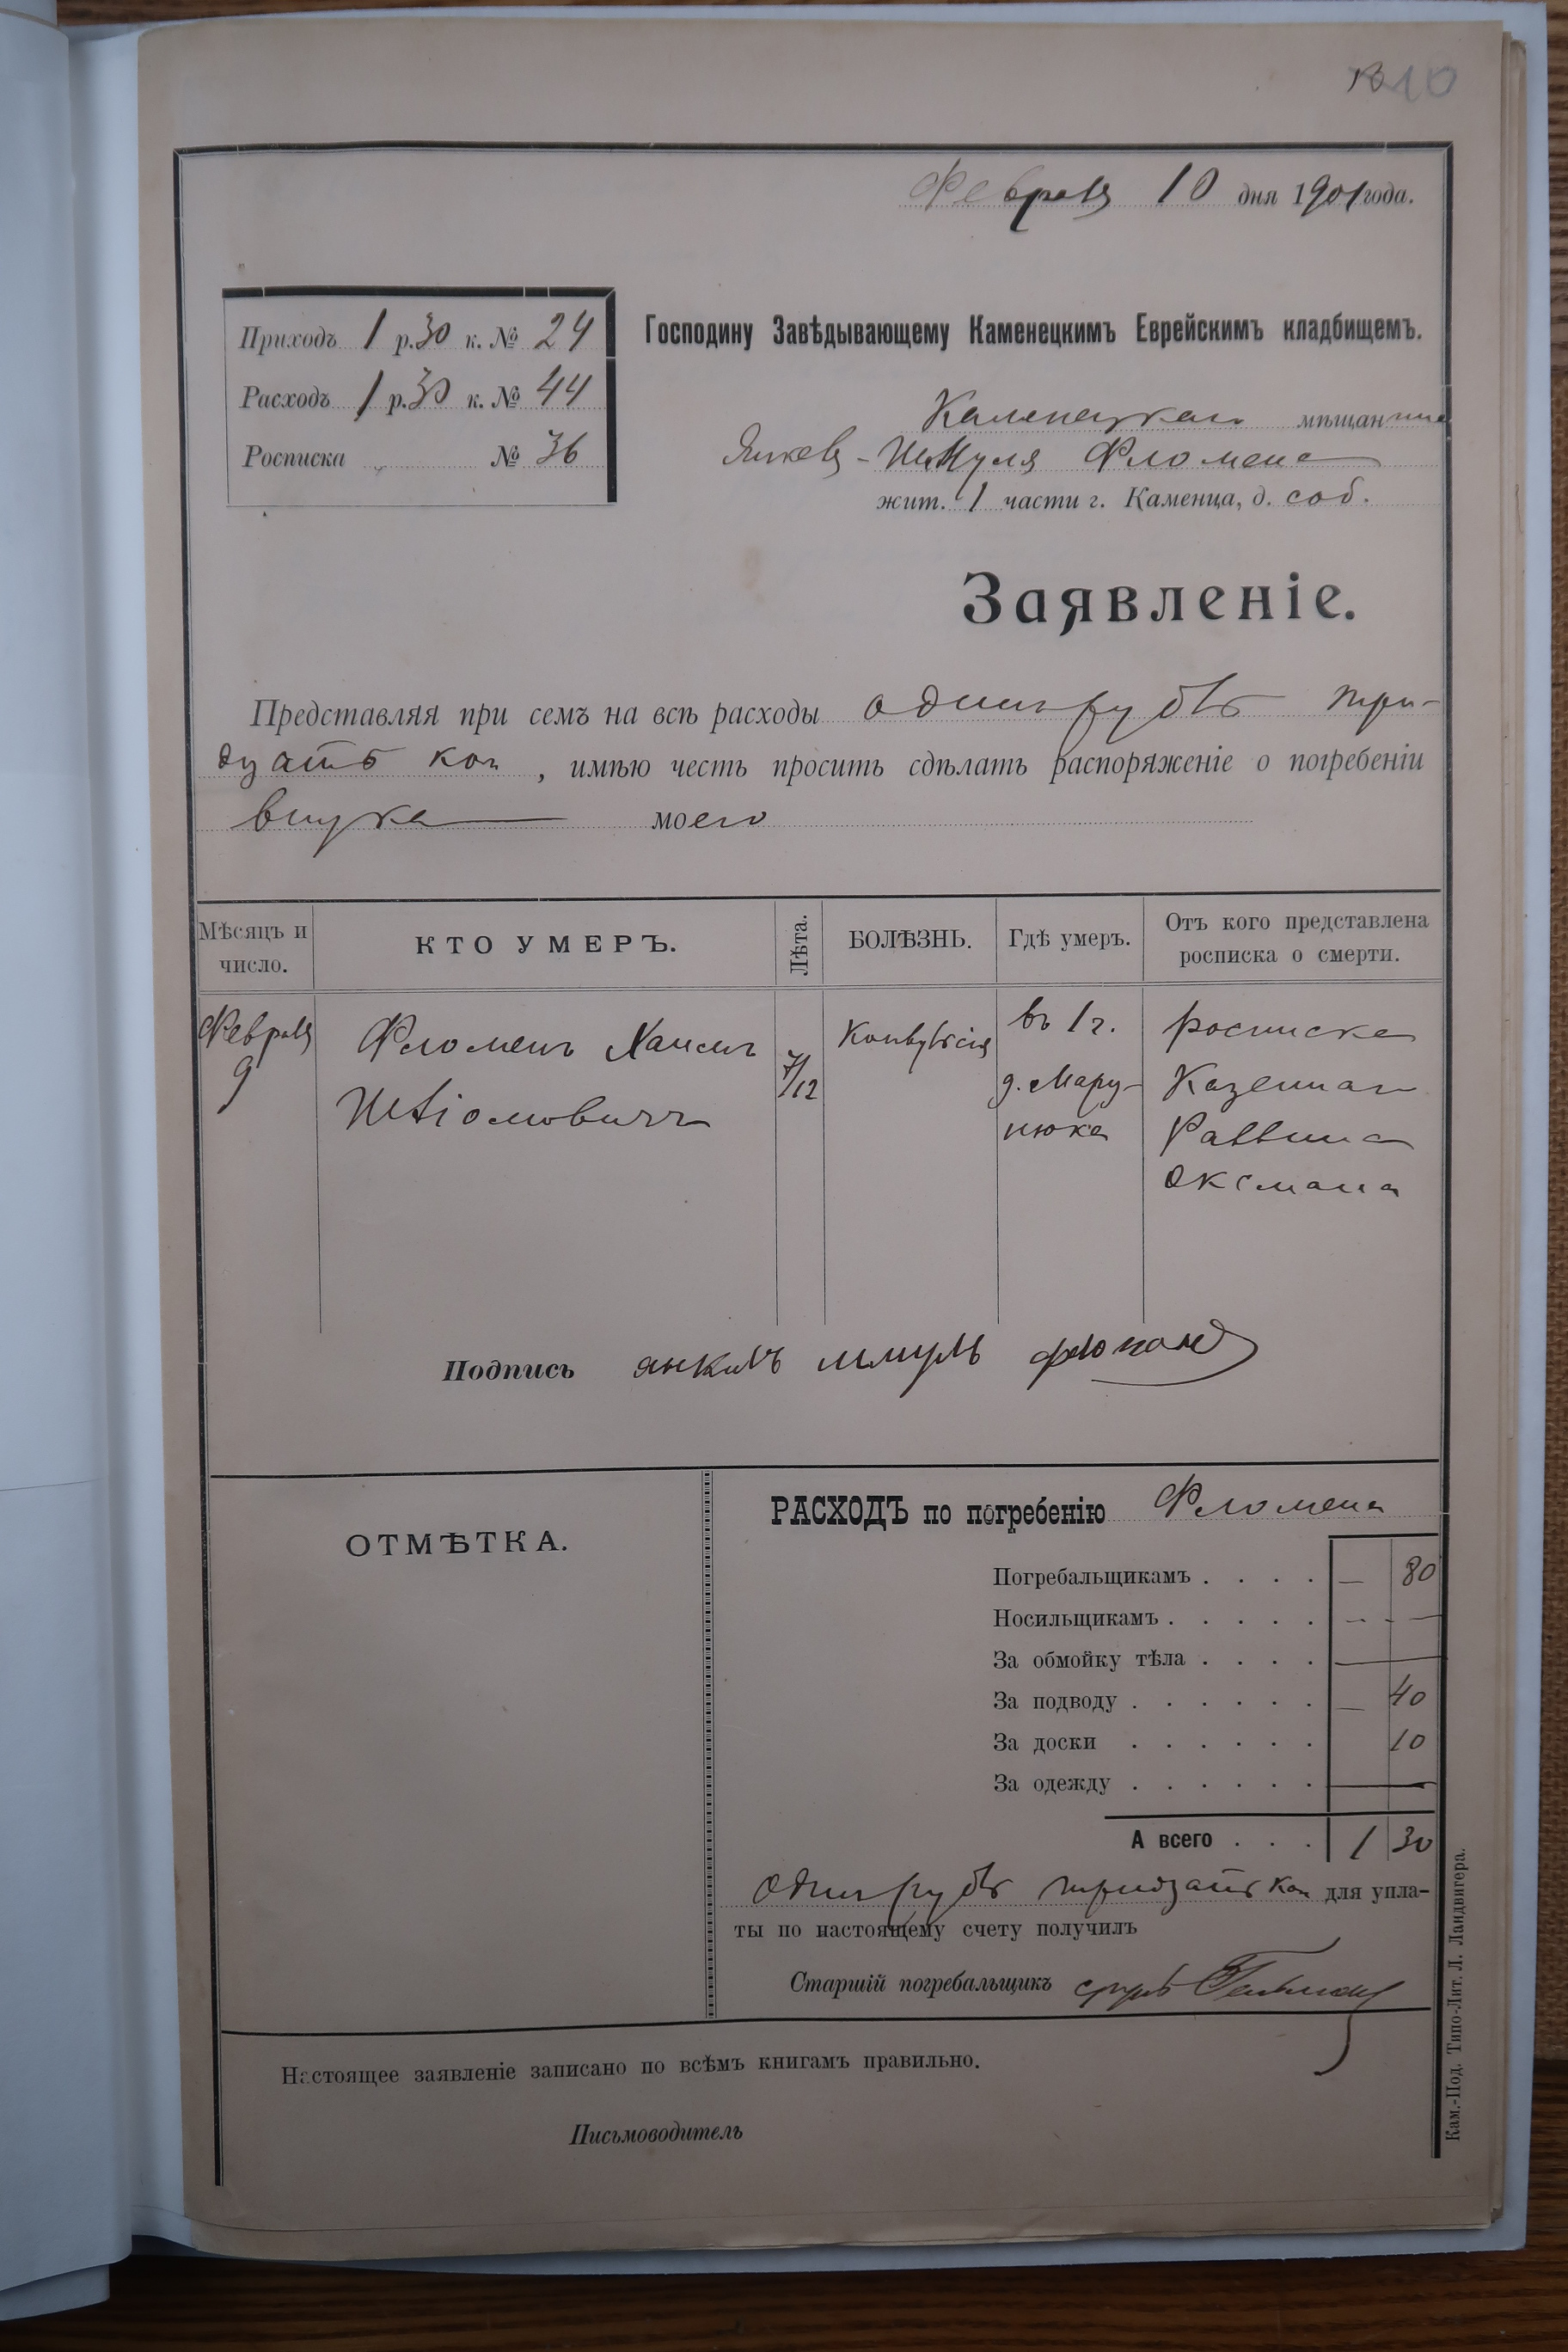 10
Февраля 10 дня 1901 года.
Приходъ 1 р. 30 к. № 24
Расходъ 1 р. 30 к. № 44
Росписка № 36
Господину Завѣдывающему Каменецкимъ Еврейскимъ кладбищемъ.
Каменецкаго мѣщанина
Янкель-Шмуля Фломена
жит. 1 части г. Каменца, д. соб.
Заявленіе.
Представляя при семъ на всѣ расходы одинъ рубль три-
дцать коп, имѣю честь просить сдѣлать распоряженіе о погребеніи
внука моего
Мѣсяцъ и число.
КТО УМЕРЪ.
Лѣта.
БОЛѢЗНЬ.
Гдѣ умеръ.
Отъ кого представлена росписка о смерти.
Февраля 9
Фломенъ
7/12
Конвульсія
въ 1 ч. д. Мару-
нюка
росписка
Казеннаго
Раввина
Оксмана
Подпись янкель шмуль
ОТМѢТКА.
РАСХОДЪ по погребенію Фломена
Погребальщикамъ . . . . — 80
Носильщикамъ . . . . . — —
За обмойку тѣла . . . . —
За подводу . . . . . . — 40
За доски . . . . . . 10
За одежду . . . . . . —
А всего . . . 1 30
Одинъ рубль тридцать коп для упла-
ты по настоящему счету получилъ
Старшій погребальщикъ
Настоящее заявленіе записано по всѣмъ книгамъ правильно.
Письмоводитель
Кам.-Под. Типо-Лит. Л. Ландвигера.